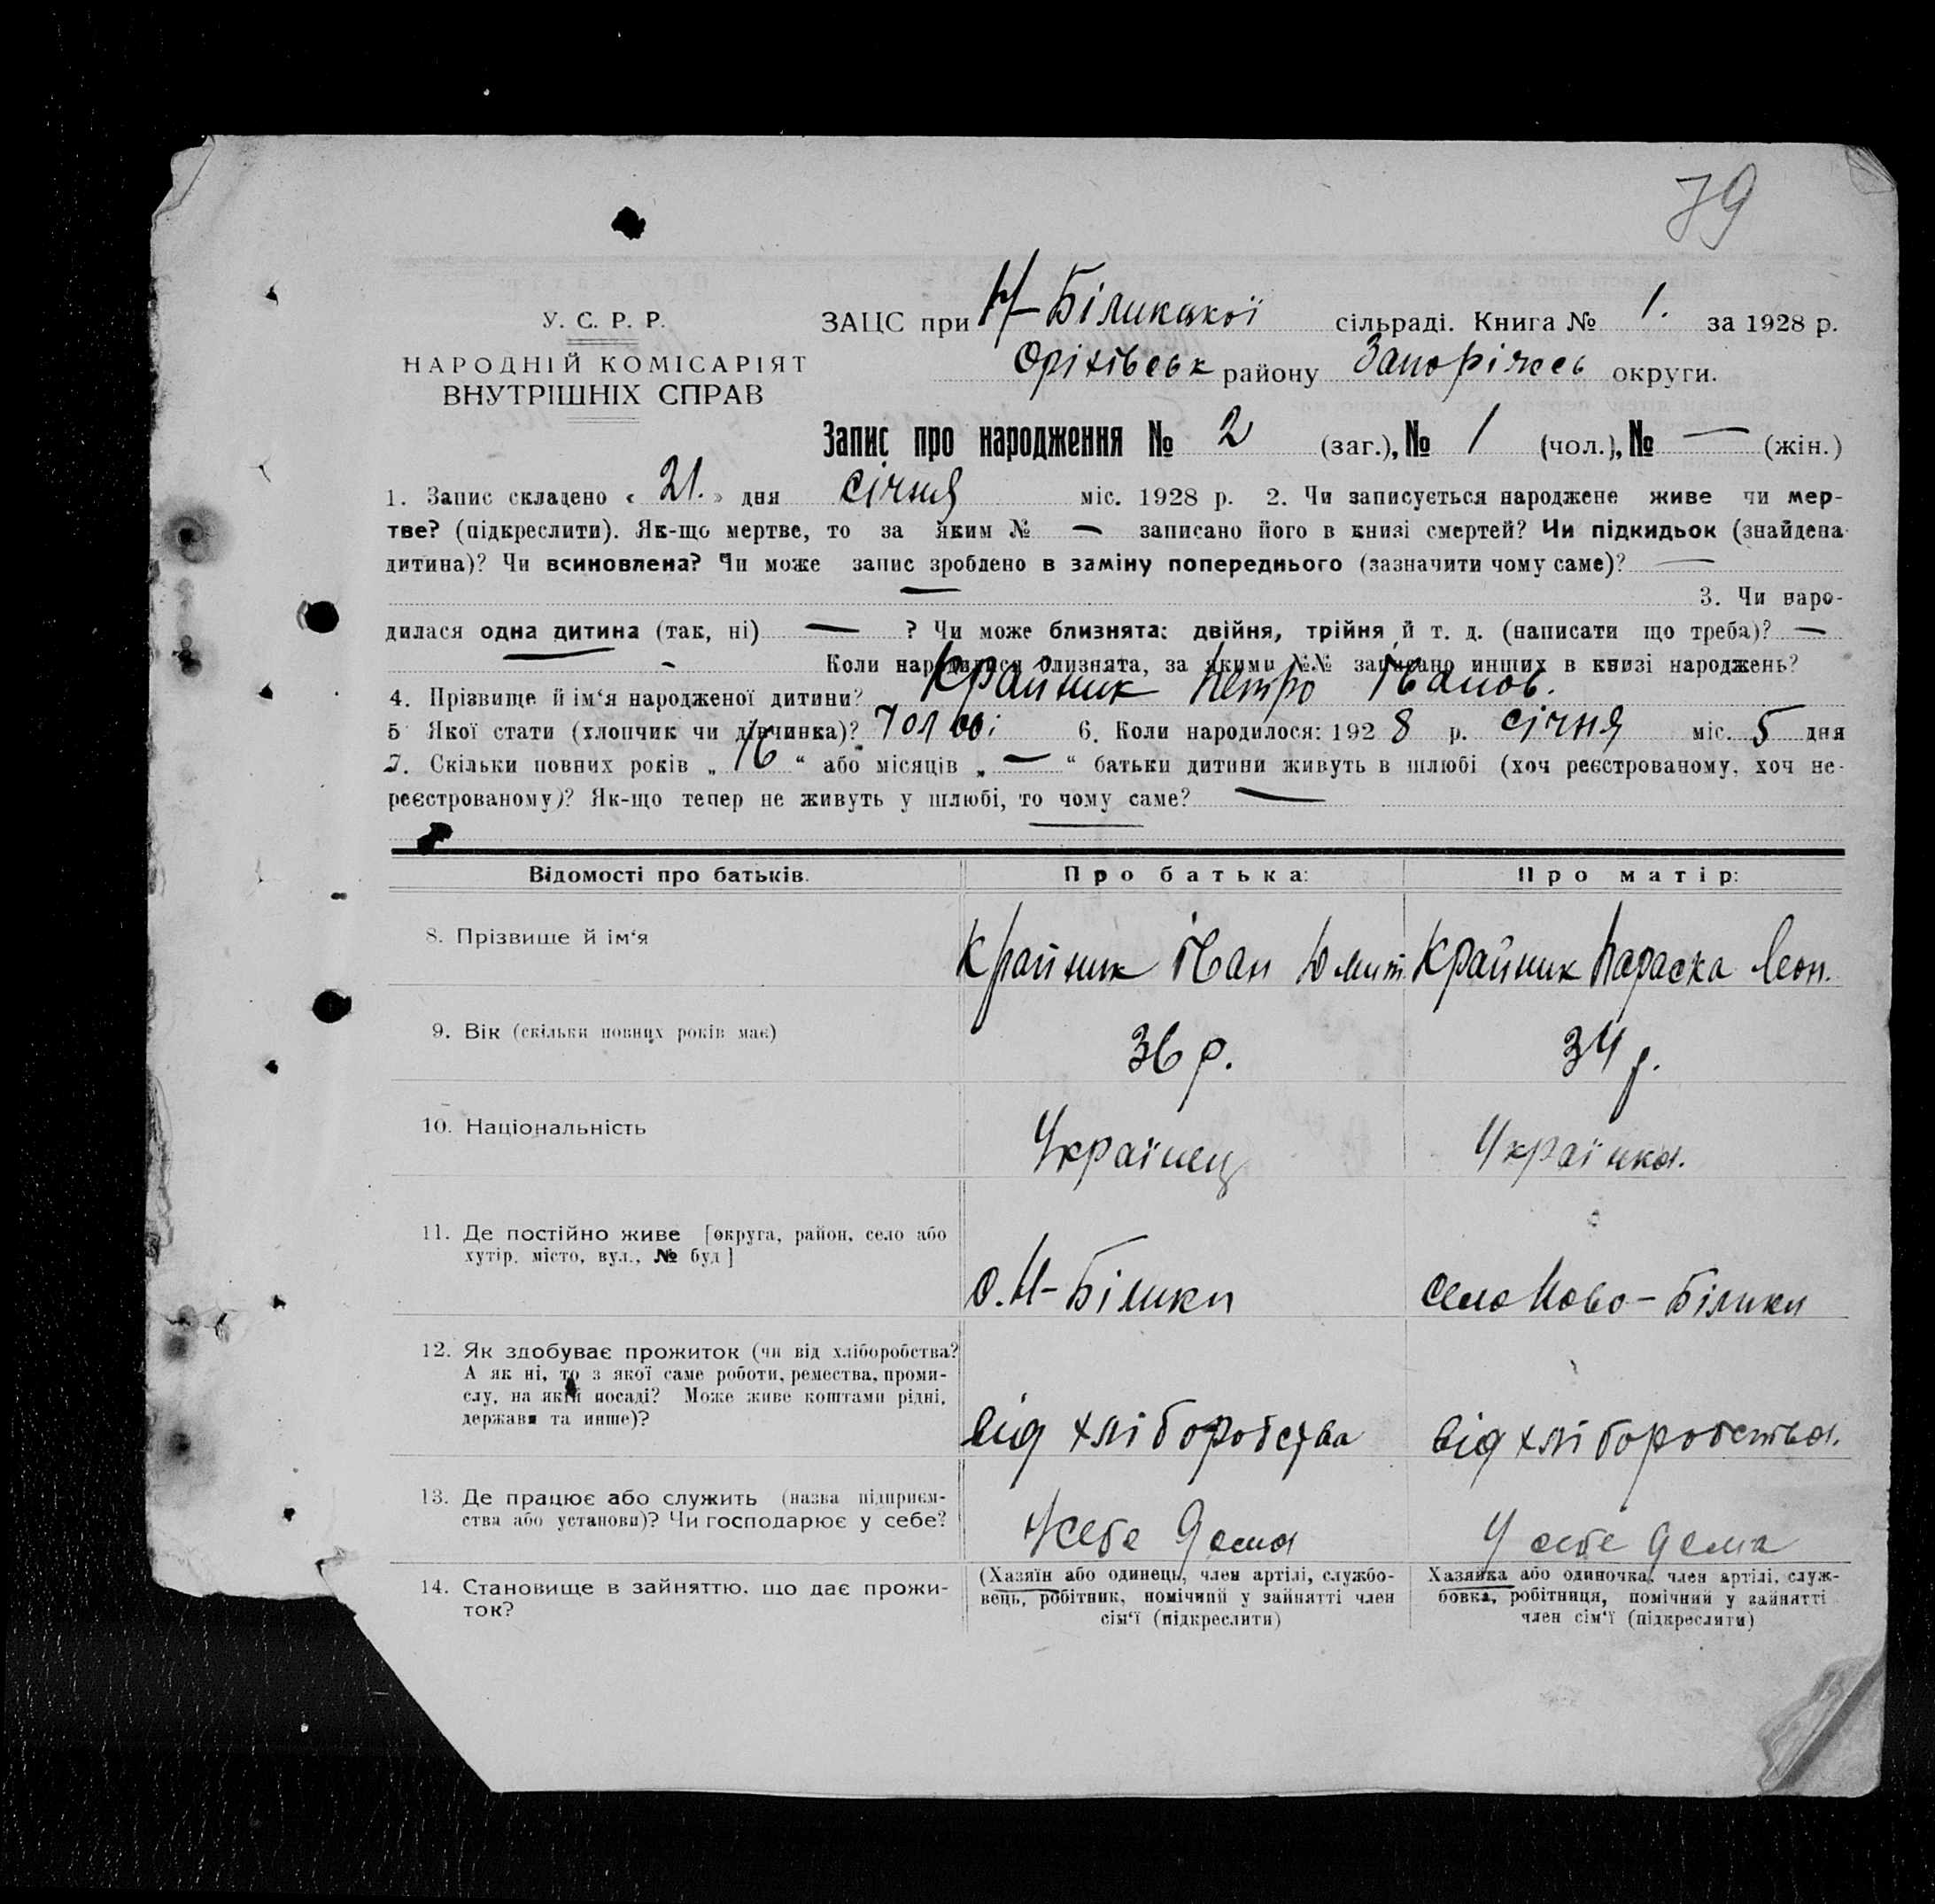 79
У. С. Р. Р.
НАРОДНІЙ КОМІСАРІЯТ
ВНУТРІШНІХ СПРАВ
ЗАЦС при Н-Біликської сільраді. Книга № 1. за 1928 р.
Оріхівськ району Запоріжсь округи.
Запис про народження № 2 (заг.), № 1 (чол.), № — (жін.)
1. Запис складено « 21. » дня січня міс. 1928 р. 2. Чи записується народжене живе чи мер-
тве? (підкреслити). Як-що мертве, то за яким № — записано його в книзі смертей? Чи підкидьок (знайдена
дитина)? Чи всиновлена? Чи може запис зроблено в заміну попереднього (зазначити чому саме)? —
— 3. Чи наро-
дилася одна дитина (так, ні) — ? Чи може близнята: двійня, трійня й т. д. (написати що треба)? —
- Коли народилися близнята, за якими №№ записано инших в книзі народжень?
4. Прізвище й ім‘я народженої дитини? Крайник Петро Іванов.
5 Якої стати (хлопчик чи дівчинка)? 6. Коли народилося: 1928 р. січня міс. 5 дня
7. Скільки повних років „ 16 “ або місяців „ — “ батьки дитини живуть в шлюбі (хоч реєстрованому, хоч не-
реєстрованому)? Як-що тепер не живуть у шлюбі, то чому саме? —
Відомості про батьків. Про батька: Про матір:
8. Прізвище й ім‘я Крайник Іван Крайник Параска Леон.
9. Вік (скільки повних років має) 36 р. 34 р.
10. Національність Українец Українка.
11. Де постійно живе [округа, район, село або
хутір, місто, вул., № буд] с. Н-Білики село Ново-Білики
12. Як здобуває прожиток (чи від хліборобства?
А як ні, то з якої саме роботи, ремества, проми-
слу, на якій посаді? Може живе коштами рідні,
держави та инше)? від хліборобства від хліборобства.
13. Де працює або служить (назва підприєм-
ства або установи)? Чи господарює у себе? У себе дома У себе дома
14. Становище в зайняттю, що дає прожи-
ток?
(Хазяїн або одинець, член артілі, службо-
вець, робітник, помічний у зайнятті член
сім‘ї (підкреслити)
Хазяйка або одиночка, член артілі, служ-
бовка, робітниця, помічний у зайнятті
член сім‘ї (підкреслити)